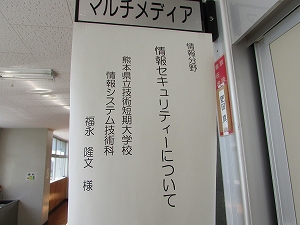 マルチメディア
情報分野
情報セキュリティーについて
熊本県立技術短期大学校
情報システム技術科
福永 隆文 様